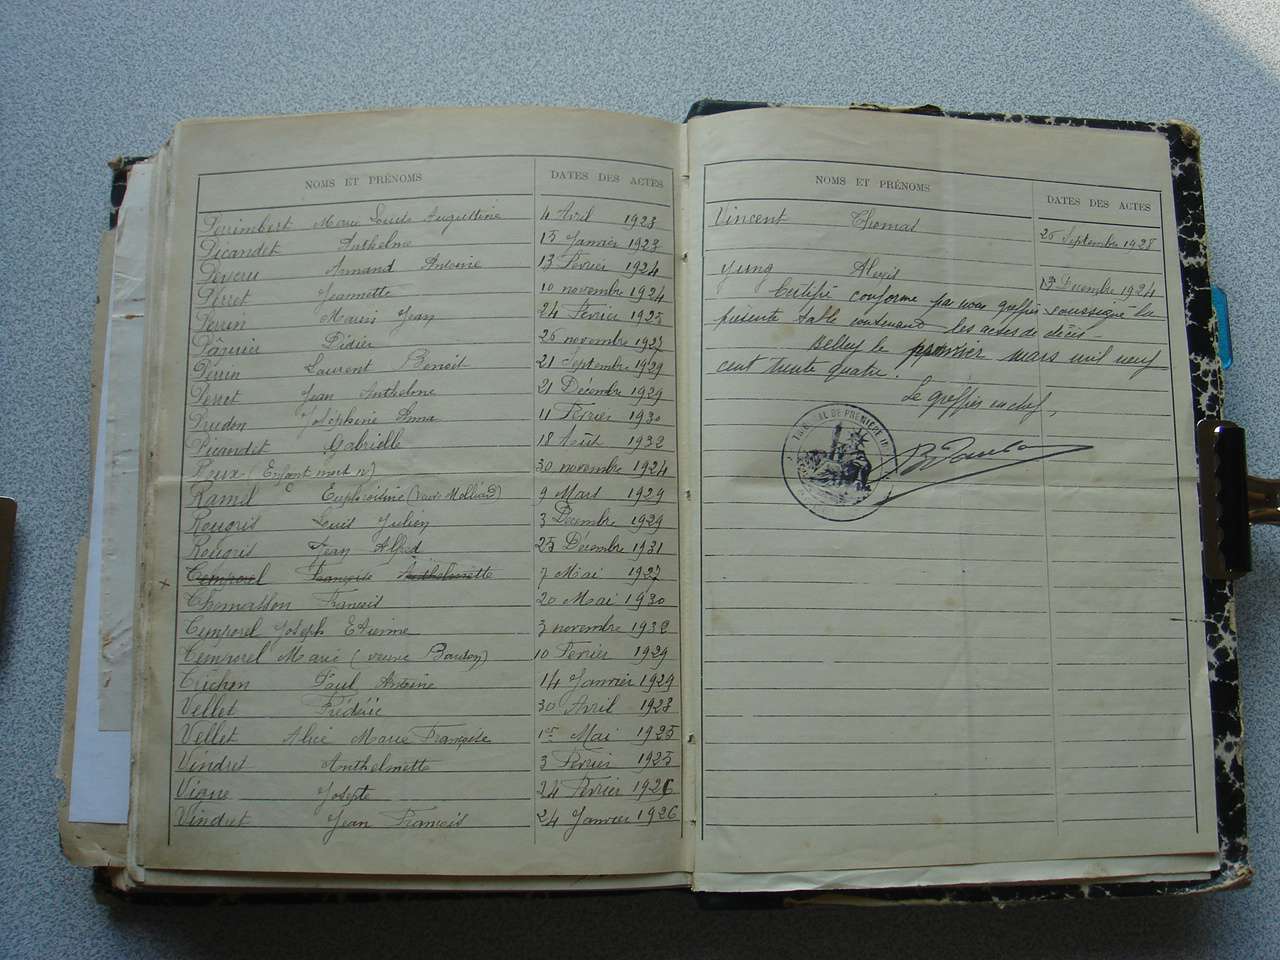 NOMS ET PRÉNOMS DATES DES ACTES
Perimbert Marie Louis Augustine 4 Avril 1923
Picandet Anthelme 15 Janvier 1923
Armand Antoine 13 Février 1924
Perret Jeannette 10 novembre 1924
Perrin Marie Jean 24 Février 1925
Didier 26 novembre 1927
Perrin Laurent Benoit 21 Septembre 1929
Perret Jean Anthelme 21 Décembre 1929
Prudon Joséphine Anna 11 Février 1930
Picandet Gabrielle 18 Août 1932
(Enfant mort né) 30 novembre 1924
Ramel Euphrosine (veuve Molliard) 9 Mars 1929
Rougris Louis Julien 3 Décembre 1929
Rougris Jean Alfred 25 Décembre 1931
x Temporel Françoise Anthelmette 7 Mai 1927
Thomasson Francois 20 Mai 1930
Temporel Joseph Etienne 3 novembre 1932
Temporel Marie (veuve) 10 Fevrier 1929
Trichon Paul Antoine 14 Janvier 1929
Vellet Frédéric 30 Avril 1923
Vellet Alice Marie Françoise 1er Mai 1925
Vindret Anthelmette 3 Février 1925
Vigne Josepte 24 Février 1926
Vindret Jean Francois 24 Janvier 1926
NOMS ET PRÉNOMS DATES DES ACTES
Vincent Thomas 26 Septembre 1928
Yung Alexis 13 Décembre 1924
Certifié conforme par nous greffier soussigné la
présente table contenant les actes de décès.
Belley le premier mars mil neuf
cent trente quatre.
Le greffier en chef,
TRIBUNAL DE PREMIÈRE